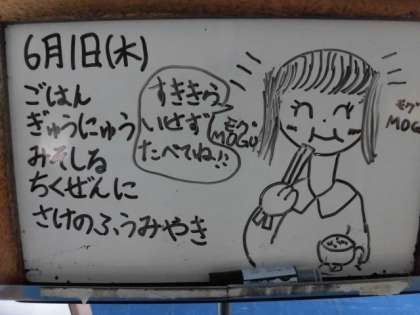 6月1日(木)
ごはん
ぎゅうにゅう
みそしる
ちくぜんに
さけのふうみやき
すききら
いせず
たべてね!!
モグ
MOGU
モグ
MOGU